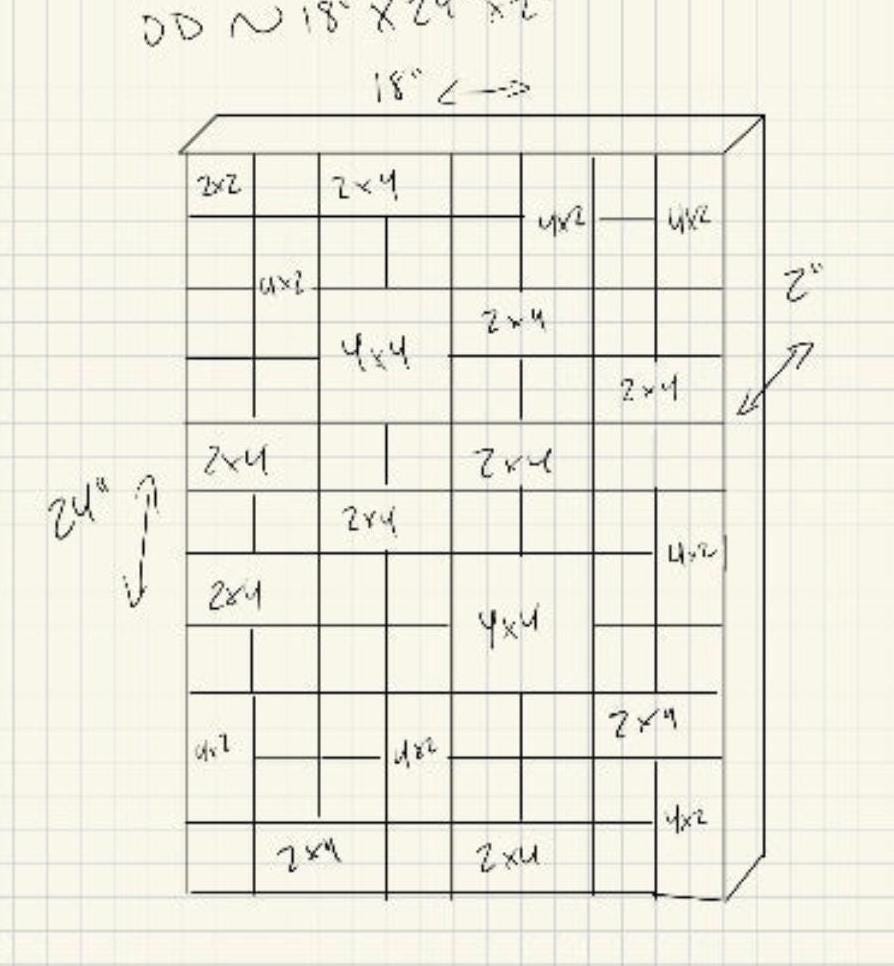 OD ~ 18" x 24 x 2
18"
2x2 2x4
4x2 4x2
4x2
2"
2x4
4x4
2x4
2x4 2x4
24"
2x4
4x2
2x4
4x4
2x4
4x2 4x2
4x2
2x4 2x4